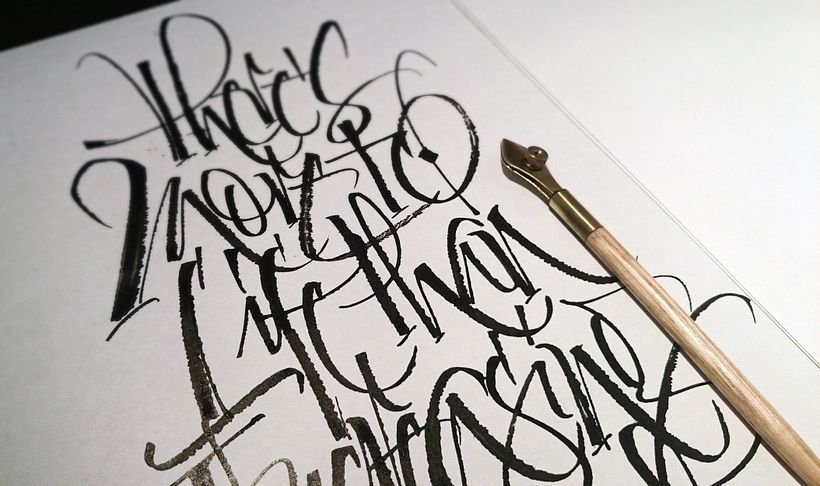 There's
More to
Life than
Increasing